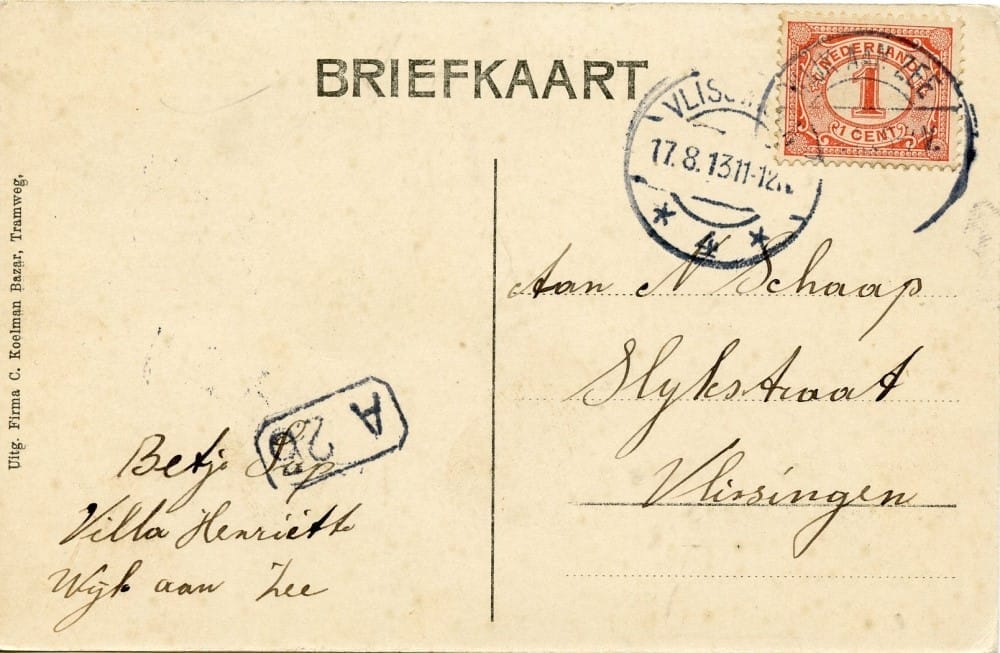 BRIEFKAART
NEDERLAND
1
1 CENT
AAN ZEE
17.8.13 11-12
4
Uitg. Firma C. Koelman Bazar, Tramweg,
Aan N Schaap
Slykstraat
Vlissingen
A
2
Betje
Villa Henriëtte
Wijk aan Zee